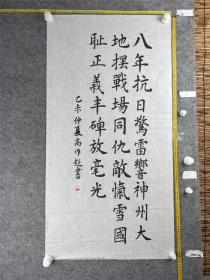 八年抗日驚雷響神州大
地擺戰場同仇敵愾雪國
耻正義丰碑放毫光
乙未仲夏高作廷書